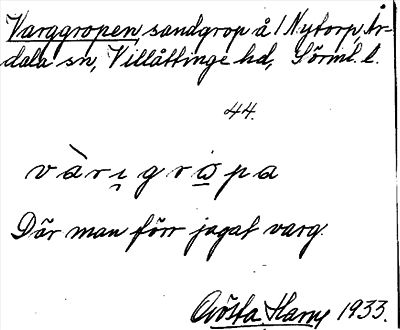 Varggropen, sandgrop å 1 Nytorp, År-
dala sn, Villåttinge hd, Sörml. l.
44.
vàrıgrω̲pa
Där man förr jagat varg.
Gösta Harry 1933.